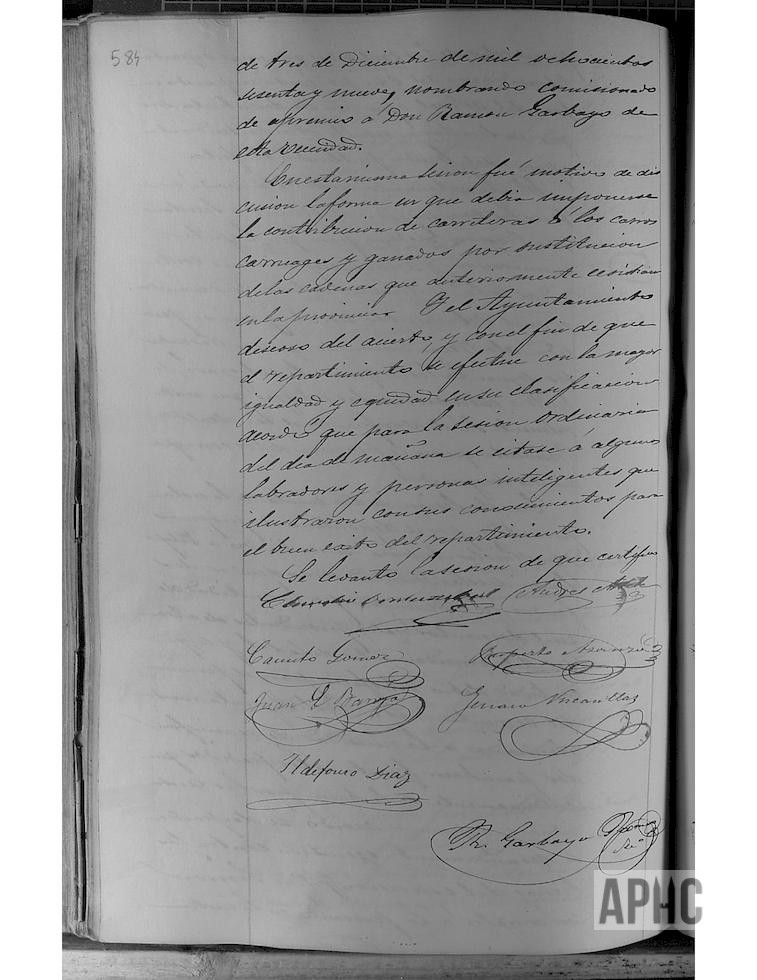 584
de tres de Diciembre de mil ochocientos
sesenta y nueve, nombrando comisionado
de apremio á Don Ramon Garbayo de
esta vecindad.
En esta misma sesion fué motivo de dis
cusion la forma en que debia imponerse
la contribucion de carreteras á los carros
carruages y ganados por sustitucion
de las cadenas que anteriormente existian
en la provincia. Y el Ayuntamiento
deseoso del acierto, y con el fin de que
el repartimiento se efectue con la mayor
igualdad y equidad en su clasificacion
acordó que para la sesion ordinaria
del dia de mañana se citase á algunos
labradores y personas inteligentes que
ilustraron con sus conocimientos para
el buen exito del repartimiento.
Se levantó la sesion de que certifico
Andres
Canuto Gomez Ruperto Asenzio
Juan E. Barojo Genaro
Ildefonso Diaz
R. Garbayo
Srio
APHC